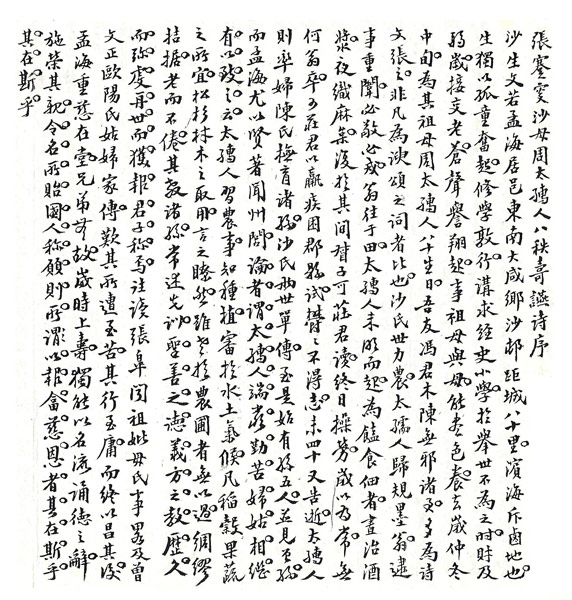 張蹇叟沙母周太孺人八秩壽讌詩序
沙生文若孟海居邑東南大咸鄉沙邨距城八十里濱海斥鹵地也
生獨以孤童奮起修學敦行講求經史小學於舉世不為之時財及
弱歲接交老蒼聲譽翔起事祖母與母能盡色養去歲仲冬
中旬為其祖母周太孺人八十生日吾友馮君木陳無邪諸多為詩
文張之非凡為諛頌之詞者比也沙氏世力農太孺人歸規墨翁逮
事重闈必敬必戒翁往于田太孺人未明而起為饁食佃者晝治酒
漿夜織麻枲沒於其間督子可莊君讀終日操勞歲以為常無
何翁卒可莊君以羸疾困郡縣試鬱鬱不得志未四十又告逝太孺人
則率婦陳氏撫育諸孫沙氏兩世單傳至是始有孫五人並見至孫
而孟海尤以賢著聞州閭論者謂太孺人端嚴勤苦婦姑相繼
有以致之云太孺人習農事知種植審於水土氣候凡稻穀果蔬
之所宜松杉林木之取用言之瞭然雖老於農圃者無以過綢繆
拮据老而不倦其教諸孫常述先訓聖善之德義方之教歷久
而彌虔再世而獲報君子稱焉往讀張皋聞祖妣母氏事畧及曾
文正歐陽氏姑婦家傳歎其所遭至苦其行至庸而終以昌其後
孟海重慈在堂兄弟無故歲時上壽獨能以名流誦德之辭
施榮其親令名所貽國人稱願則所謂以報畜慈恩者其在斯乎
其在斯乎